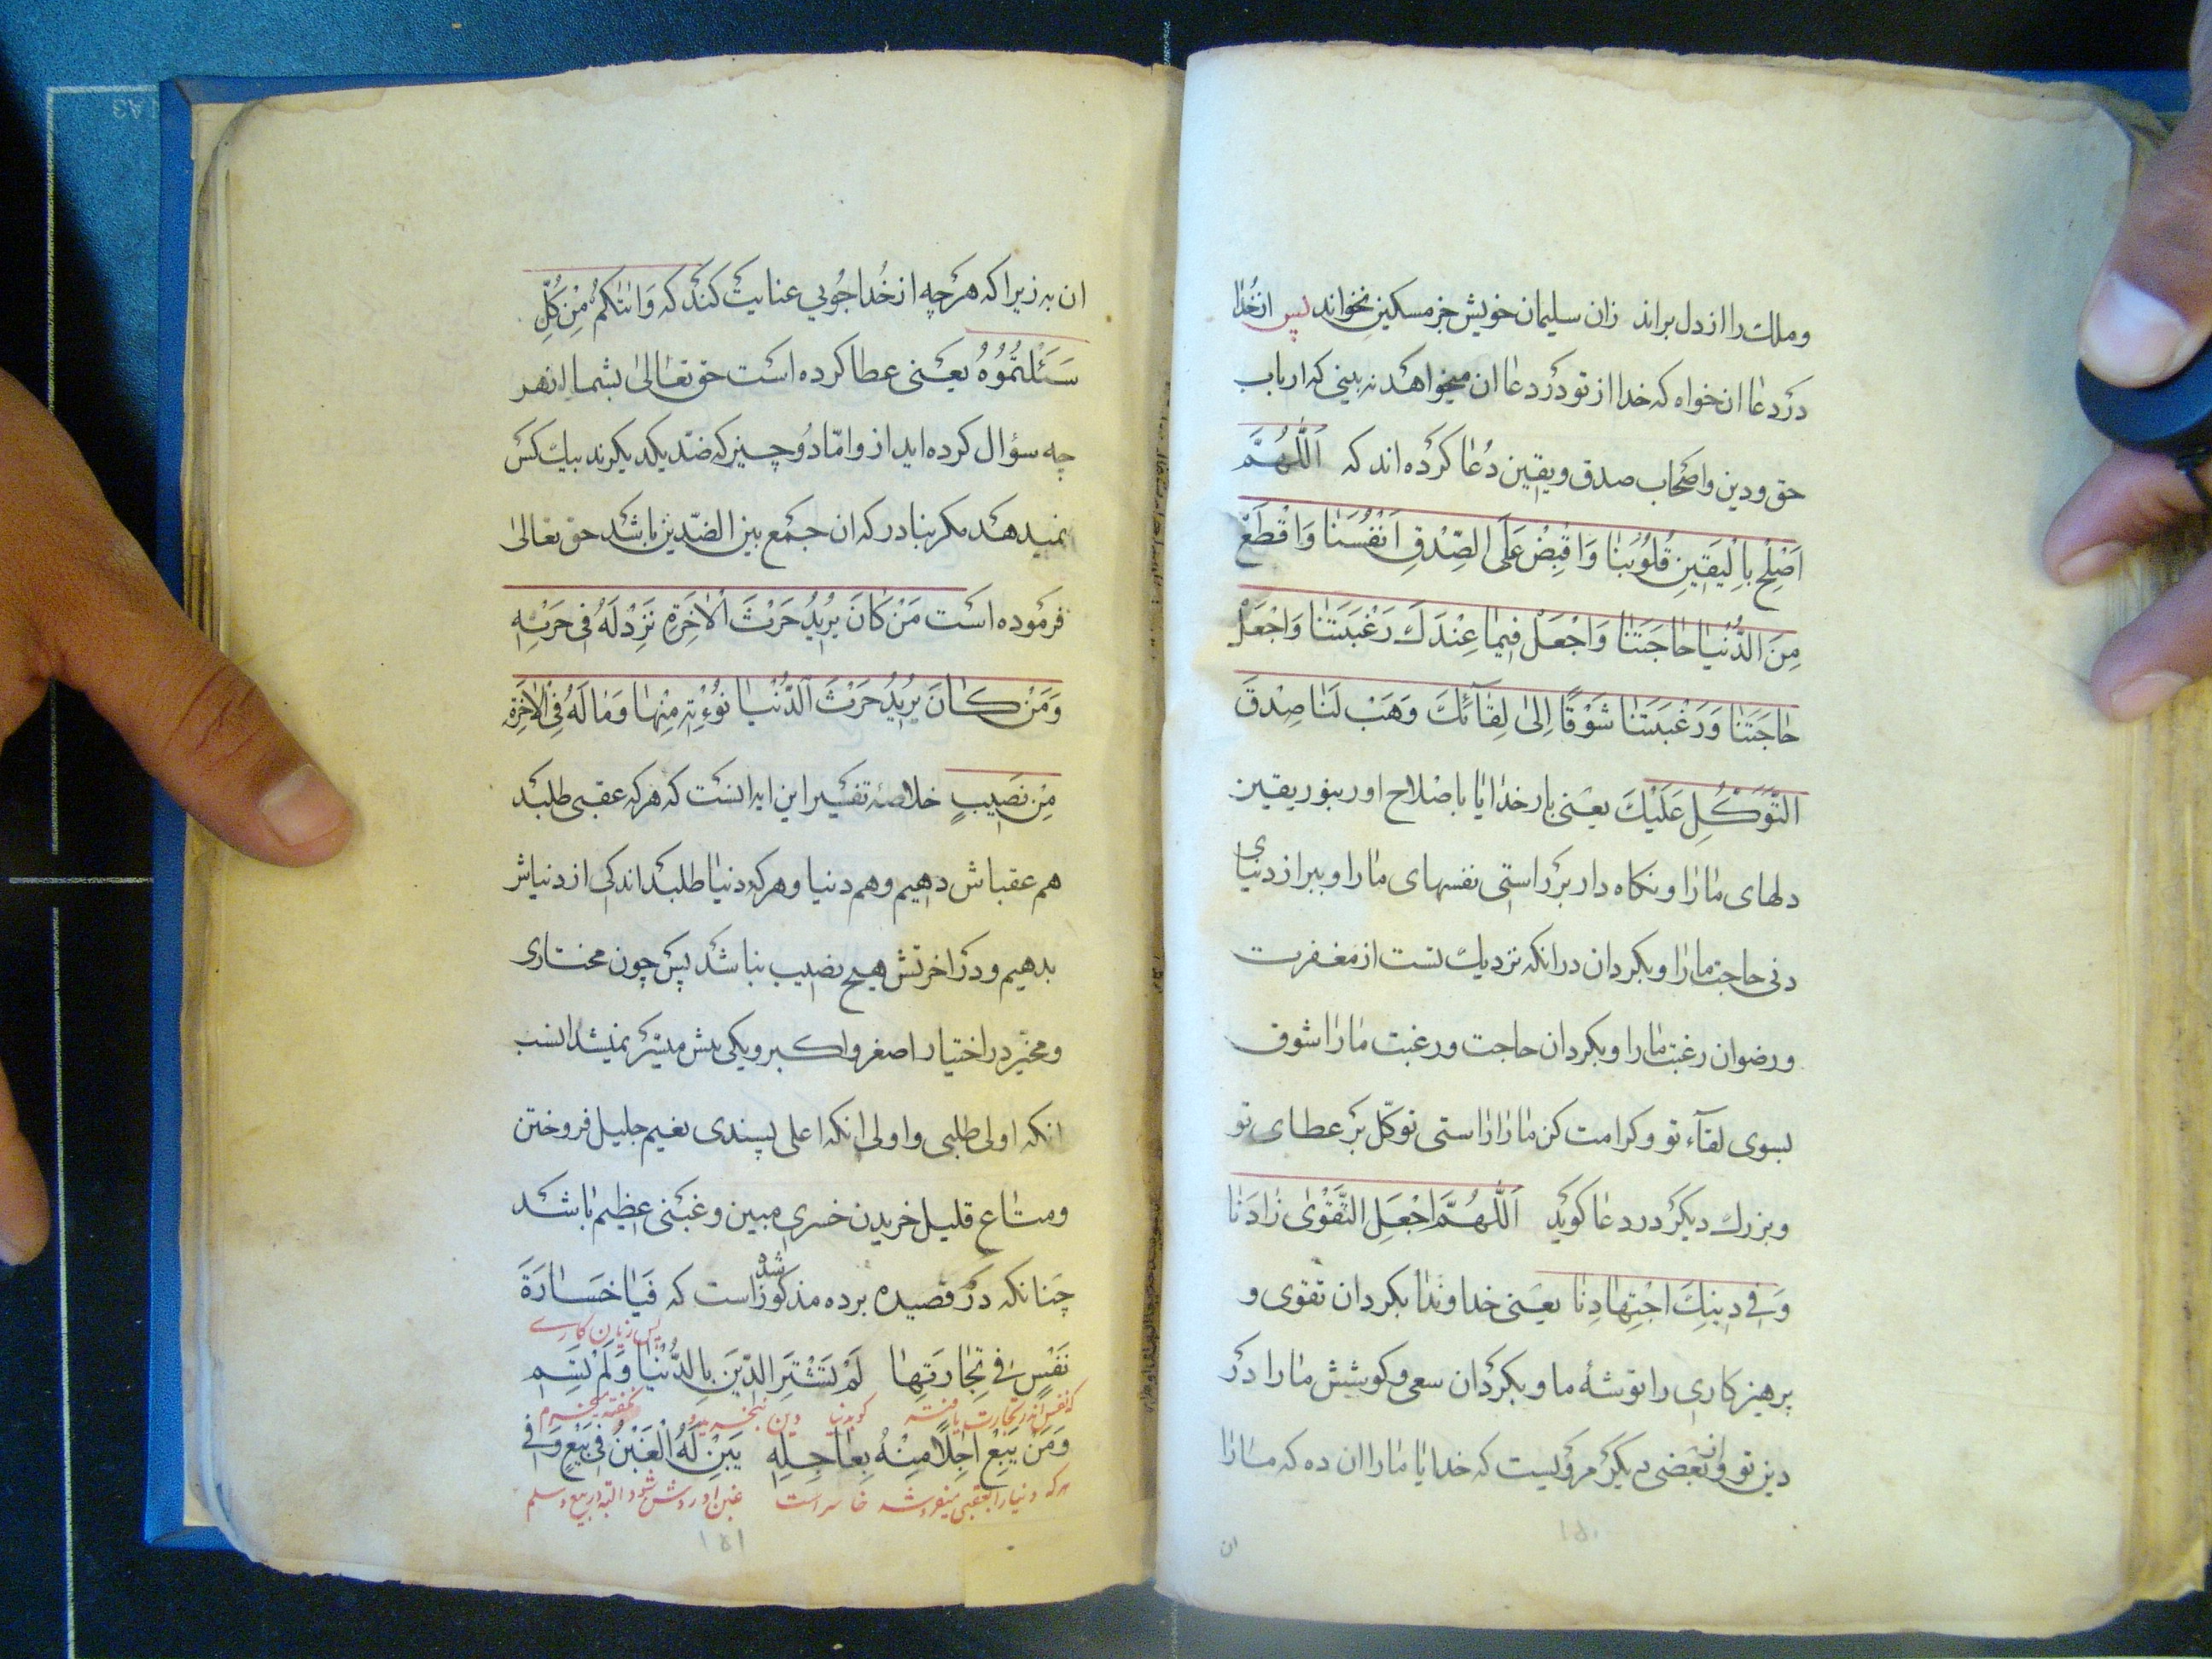 وملك را از دل براند زان سلیمان خویش جز مسکین نخواند پس از خُدا
دَر دعا ان خواه که خدا از تو دَر دعا ان میخواهد نه بینی که ارباب
حق و دین و اصحاب صدق و یقین دُعا کرده اند که اَللّٰهُمَّ
اَصْلِحْ بِالْیَقِینِ قُلُوبَنٰا وَاقْبِضْ عَلَی الصِّدْقِ اَنْفُسَنٰا وَاقْطَعْ
مِنَ الدُّنْیٰا حٰاجَتَنٰا وَاجْعَلْ فِیمٰا عِنْدَكَ رَغْبَتَنٰا وَاجْعَلْ
حٰاجَتَنٰا وَرَغْبَتَنٰا شَوْقًا اِلیٰ لِقٰآئِكَ وَهَبْ لَنٰا صِدْقَ
التَّوَكُّلِ عَلَیْكَ یعنی بار خدایا باصلاح اور بنور یقین
دلهای ما را و نکاه دار بر راستی نفسهای ما را و ببر از دنیای
دنی حاجت ما را و بکردان در انکه نزدیك تست از مغفرت
و رضوان رغبت ما را و بکردان حاجت و رغبت ما را شوق
بسوی لقآء تو و کرامت کن ما را راستی توکّل بر عطای تو
و بزرك دیکر در دعا کوید اَللّٰهُمَّ اجْعَلِ التَّقْویٰ زٰادَنٰا
وَفِی دِینِكَ اجْتِهٰادِنٰا یعنی خداوندا بکردان تقوی و
پرهیزکاری را توشۀ ما و بکردان سعی و کوشیش ما را دَر
دین تو و از بعضی دیکر مرویست که خدایا ما را ان ده که ما را
ان
۱۵۰
ان به زیرا که هرچه از خُدا جُویی عنایت کند که وَاٰتٰیکُمْ مِنْ کُلِّ
سَئَلْتُمُوُهُ یعنی عطا کرده است حق تعالیٰ بشما از هر
چه سؤال کرده اید از و امّا دُو چیز که ضدّ یکدیکرند بیك کس
نمیدهد مکر بنادر که ان جمع بین الضدّین باشد حق تعالیٰ
فرموده است مَنْ کٰانَ یُرِیدُ حَرْثَ الْاٰخِرَةِ نَزِدْ لَهُ فِی حَرْثِهِ
وَمَنْ کٰانَ یُرِیدُ حَرْثَ الدُّنْیٰا نُؤْتِهِ مِنْهٰا وَمٰا لَهُ فِی الْاٰخِرَةِ
مِنْ نَصِیبٍ خلاصۀ تفسیر این ایه انست که هرکه عقبی طلبد
هم عقباش دهیم و هم دنیا و هرکه دنیا طلبد اندکی از دنیاش
بدهیم و در اخرتش هیچ نصیب نباشد پس چون مختاری
و مخیّر در اختیار اصغر و اکبر و یکی بیش میسّر نمیشد انسب
انکه اولی طلبی و اولی انکه اعلی پسندی نعیم جلیل فروختن
و متاع قلیل خریدن خسری مبین و غبنی عظیم باشد
چنانکه در قصیده برده مذکور شده است که فَیٰا خَسٰارَةَ
پس زیان کاری
نَفْسٍ فِی تِجٰارَتِهٰا لَمْ تَشْتَرِ الدِّینَ بِالدُّنْیٰا وَلَمْ تَسِمِ
که نفس اندر تجارت یافته کو بدنیا دین نخرید و نکفته میخرم
وَمَنْ یَبِعْ اٰجِلًا مِنْهُ بِعٰاجِلِهِ یَبِنْ لَهُ الْغَبْنُ فِی بَیْعٍ وَفِی
هرکه دنیا را بعقبی میفروشد خاسر است غبن او روشن شود البته در بیع و سلم
۱۵۱